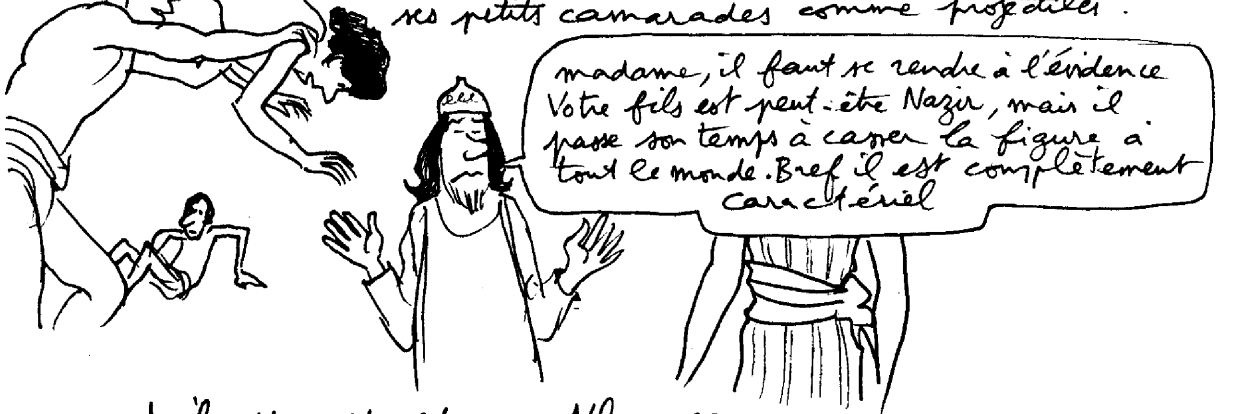 ses petits camarades comme projectiles.
madame, il faut se rendre à l'évidence
Votre fils est peut-être Nazir, mais il
passe son temps à casser la figure à
tout le monde. Bref il est complètement
caractériel